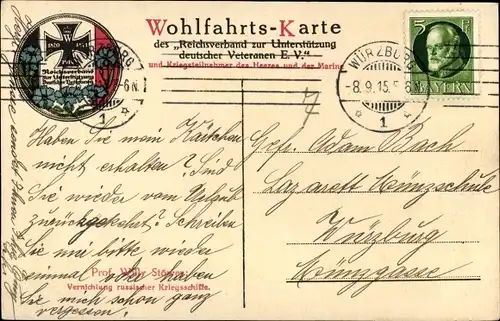 Wohlfahrts-Karte
des „Reichsverband zur Unterstützung
deutscher Veteranen E. V."
und Kriegsteilnehmer des Heeres und der Marine
Reichsverband
zur Unterstützung
Deutscher Veteranen
WÜRZBURG
-8.9.15. 6N.
1
5 Pf.
BAYERN
Haben Sie mein Kärtchen
nicht erhalten? Sind
Sie wieder vom Urlaub
zurückgekehrt? Schreiben
Sie mir bitte wieder
einmal oder haben
Sie mich schon ganz
vergessen!
Adam Bach
Lazarett Münzschule
Würzburg
Münzgasse
Prof. Willy Stöwer:
Vernichtung russischer Kriegsschiffe.